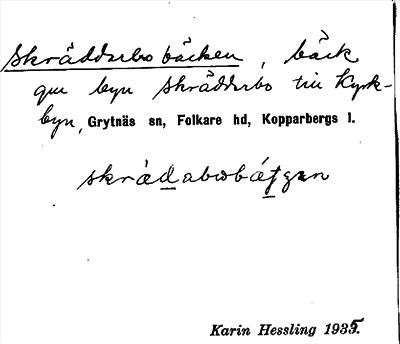 Skräddarbo bäcken, bäck
gm byn Skräddarbo till Kyrk-
byn, Grytnäs sn, Folkare hd, Kopparbergs l.
Karin Hessling 1935.